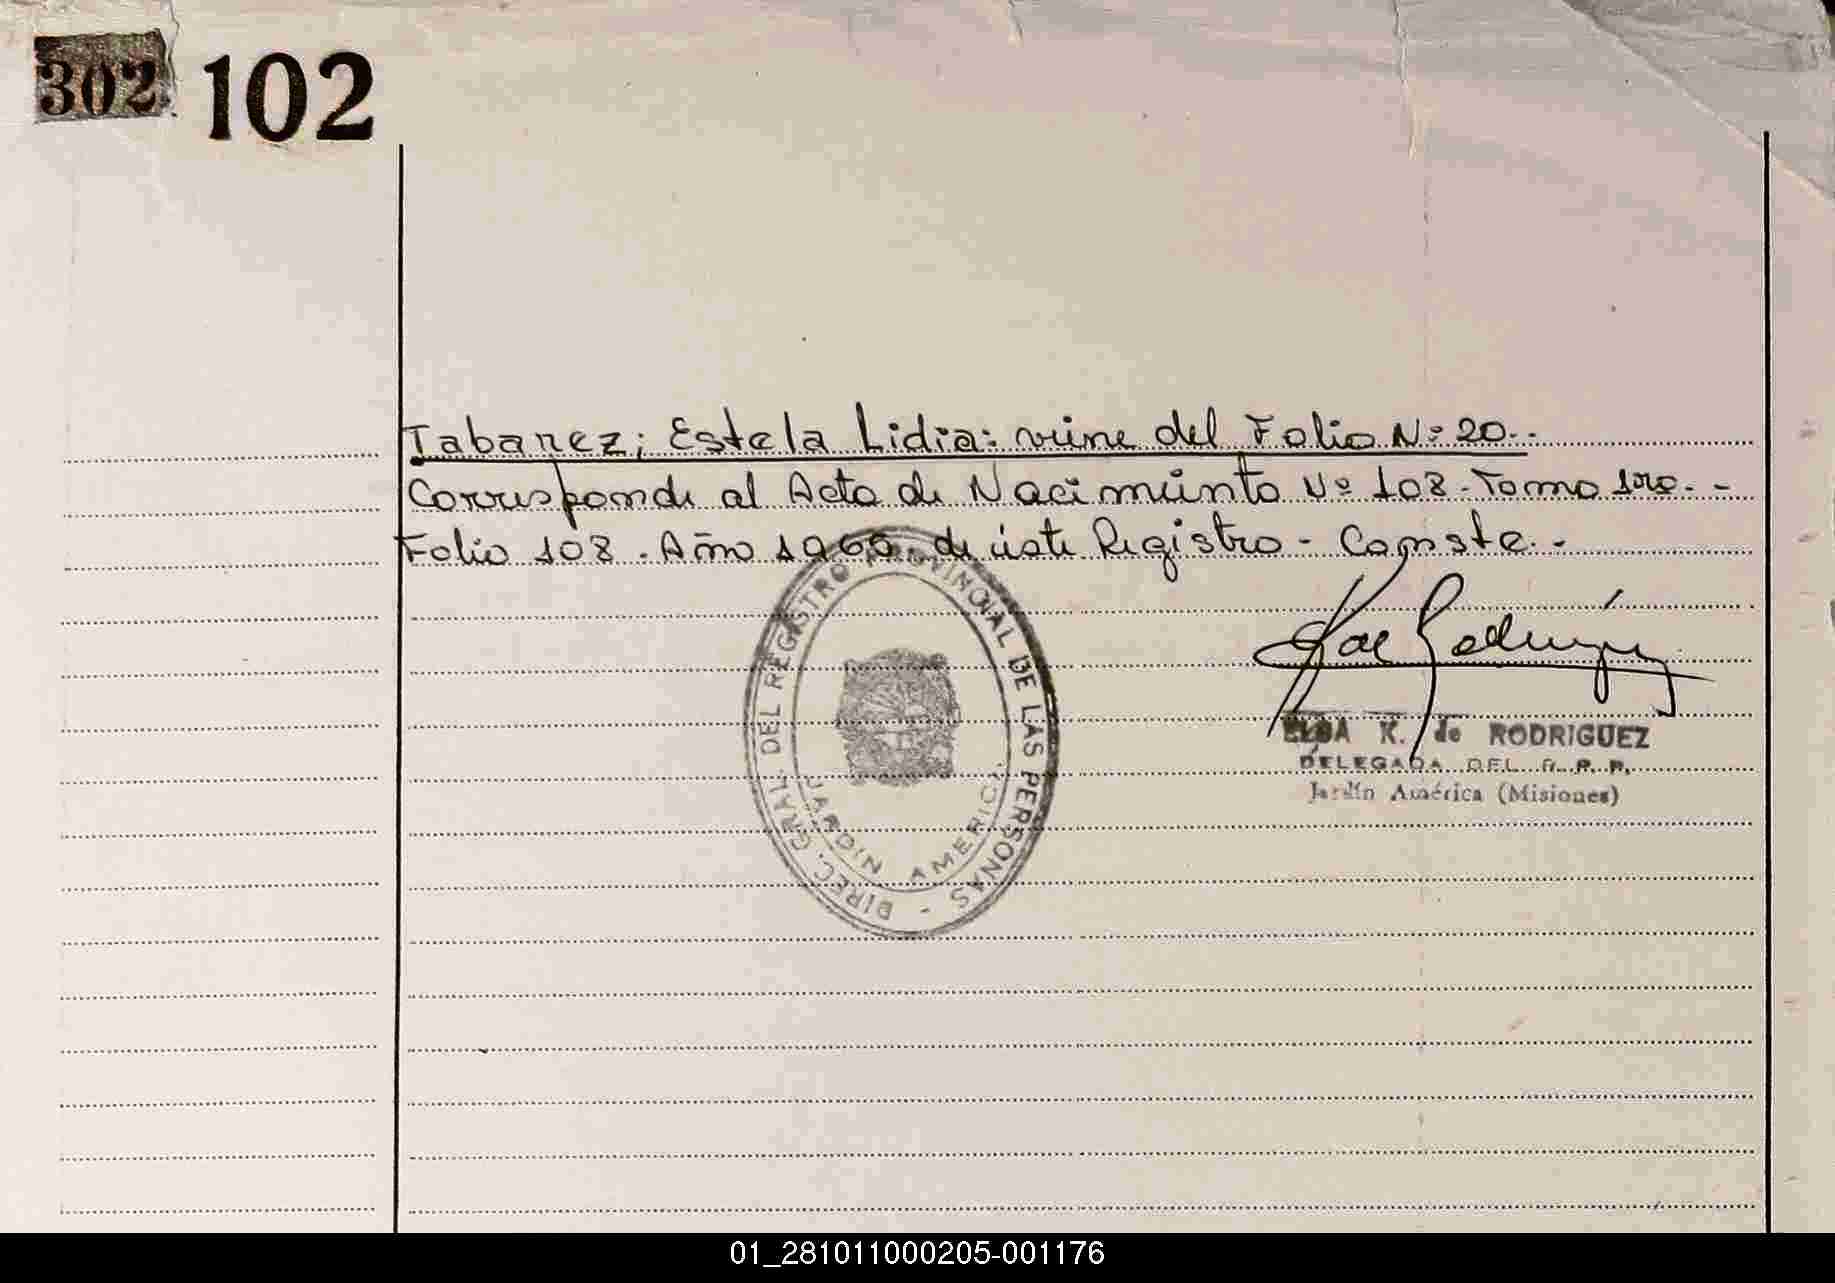 302 102
Tabarez; Estela Lidia: viene del Folio Nº 20.-
Corresponde al Acta de Nacimiento Nº 108. Tomo 1ro. -
Folio 108. Año 1966. de éste Registro - Conste. -
DIREC. GRAL. DEL REGISTRO PROVINCIAL DE LAS PERSONAS -
JARDIN AMERICA
ELSA K. de RODRIGUEZ
DELEGADA DEL R. P. P.
Jardín América (Misiones)
01_281011000205-001176